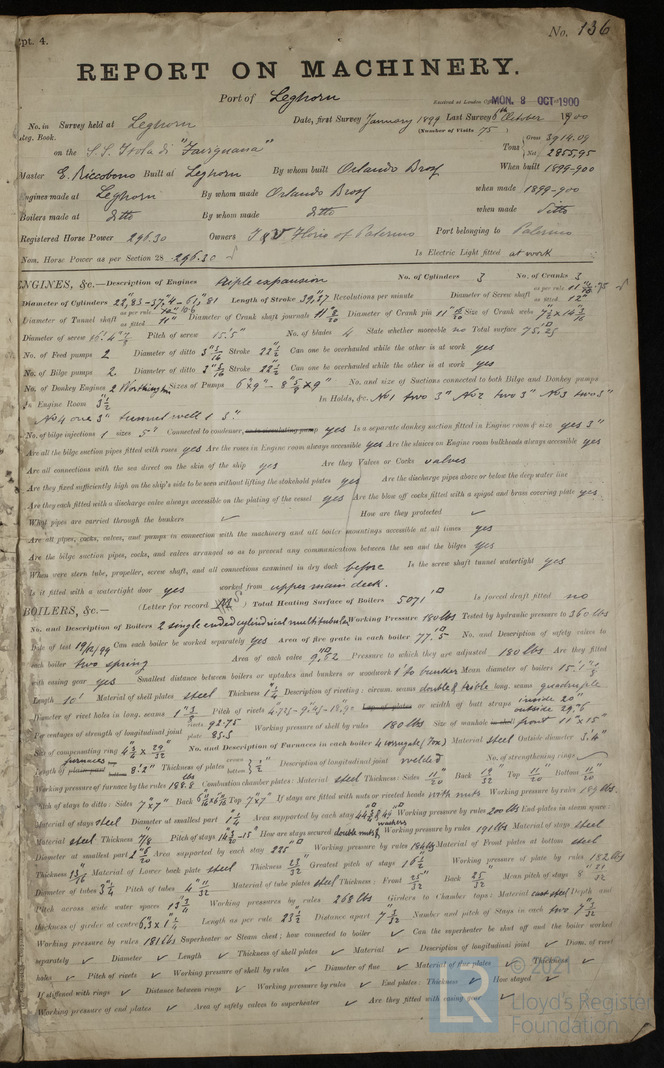 pt. 4.
No. 136
REPORT ON MACHINERY.
Port of Leghorn
Received at London Office MON. 8 OCT 1900
No. in Survey held at Leghorn Date, first Survey January 1899 Last Survey 6th October 1900
Reg. Book. (Number of Visits 75)
on the S.S. Isola di "Favignana" Tons Gross 3914.09
Net 2855,95
Master E. Riccobono Built at Leghorn By whom built Orlando Brosr When built 1899-900
Engines made at Leghorn By whom made Orlando Brosr when made 1899-900
Boilers made at ditto By whom made ditto when made ditto
Registered Horse Power 296.30 Owners I & V Florio of Palermo Port belonging to Palermo
Nom. Horse Power as per Section 28 296.30 Is Electric Light fitted at work
ENGINES, &c.—Description of Engines Triple expansion No. of Cylinders 3 No. of Cranks 3
Diameter of Cylinders Length of Stroke 39,37 Revolutions per minute Diameter of Screw shaft as per rule
as fitted 12"
Diameter of Tunnel shaft as per rule
as fitted 11" Diameter of Crank shaft journals Diameter of Crank pin Size of Crank webs
Diameter of screw Pitch of screw 15'.5" No. of blades 4 State whether moveable no Total surface
No. of Feed pumps 2 Diameter of ditto Stroke 22½ Can one be overhauled while the other is at work yes
No. of Bilge pumps 2 Diameter of ditto Stroke 22½ Can one be overhauled while the other is at work yes
No. of Donkey Engines 2 Worthington Sizes of Pumps No. and size of Suctions connected to both Bilge and Donkey pumps
In Engine Room 3½ In Holds, &c. No1 two 3" No2 two 3" No3 two 3"
No4 one 3" tunnel well 1 3"
No. of bilge injections 1 sizes 5" Connected to condenser, or to circulating pump yes Is a separate donkey suction fitted in Engine room & size yes 3"
Are all the bilge suction pipes fitted with roses yes Are the roses in Engine room always accessible yes Are the sluices on Engine room bulkheads always accessible yes
Are all connections with the sea direct on the skin of the ship yes Are they Valves or Cocks valves
Are they fixed sufficiently high on the ship's side to be seen without lifting the stokehold plates yes Are the discharge pipes above or below the deep water line
Are they each fitted with a discharge valve always accessible on the plating of the vessel yes Are the blow off cocks fitted with a spigot and brass covering plate yes
What pipes are carried through the bunkers ✓ How are they protected ✓
Are all pipes, cocks, valves, and pumps in connection with the machinery and all boiler mountings accessible at all times yes
Are the bilge suction pipes, cocks, and valves arranged so as to prevent any communication between the sea and the bilges yes
When were stern tube, propeller, screw shaft, and all connections examined in dry dock before Is the screw shaft tunnel watertight yes
Is it fitted with a watertight door yes worked from upper main deck.
BOILERS, &c.— (Letter for record ) Total Heating Surface of Boilers 5071 Is forced draft fitted no
No. and Description of Boilers 2 single ended cylindrical multitubular Working Pressure 180 lbs Tested by hydraulic pressure to 360 lbs
Date of test 19/12/99 Can each boiler be worked separately yes Area of fire grate in each boiler 77.5 No. and Description of safety valves to
each boiler two spring Area of each valve 9.62 Pressure to which they are adjusted 180 lbs Are they fitted
with easing gear yes Smallest distance between boilers or uptakes and bunkers or woodwork 1' to bunker Mean diameter of boilers
Length 10' Material of shell plates steel Thickness 1¼ Description of riveting: circum. seams double & treble long. seams quadruple
Diameter of rivet holes in long. seams Pitch of rivets Lap of plates or width of butt straps inside 20"
outside 29,75
Percentages of strength of longitudinal joint rivets 92.75
plate 85.5 Working pressure of shell by rules 180 lbs Size of manhole in shell front 11" x 15"
Size of compensating ring No. and Description of Furnaces in each boiler 4 corrugated (Fox) Material steel Outside diameter 3'.4"
Length of plain part furnaces 8'.2" Thickness of plates crown
bottom ½" Description of longitudinal joint welded No. of strengthening rings ✓
Working pressure of furnace by the rules 188.8 lbs Combustion chamber plates: Material steel Thickness: Sides 11/20 Back 19/32 Top 11/20 Bottom 11/20
Pitch of stays to ditto: Sides 7"x7" Back Top 7"x7" If stays are fitted with nuts or riveted heads with nuts Working pressure by rules
Material of stays steel Diameter at smallest part Area supported by each stay Working pressure by rules 200 lbs End plates in steam space:
Material steel Thickness 7/8 Pitch of stays How are stays secured double nuts & washers Working pressure by rules 191 lbs Material of stays steel
Diameter at smallest part Area supported by each stay 225 Working pressure by rules 184 lbs Material of Front plates at bottom steel
Thickness 13/16 Material of Lower back plate steel Thickness 23/32 Greatest pitch of stays 16½ Working pressure of plate by rules 182 lbs
Diameter of tubes 3¼ Pitch of tubes Material of tube plates steel Thickness: Front 25/32 Back 25/32 Mean pitch of stays
Pitch across wide water spaces 13¾ Working pressures by rules 268 lbs Girders to Chamber tops: Material cast steel Depth and
thickness of girder at centre Length as per rule 23½ Distance apart Number and pitch of Stays in each
Working pressure by rules 181 lbs Superheater or Steam chest; how connected to boiler ✓ Can the superheater be shut off and the boiler worked
separately ✓ Diameter ✓ Length ✓ Thickness of shell plates ✓ Material ✓ Description of longitudinal joint ✓ Diam. of rivet
holes ✓ Pitch of rivets ✓ Working pressure of shell by rules ✓ Diameter of flue ✓ Material of flue plates ✓ Thickness ✓
If stiffened with rings ✓ Distance between rings ✓ Working pressure by rules ✓ End plates: Thickness ✓ How stayed ✓
Working pressure of end plates ✓ Area of safety valves to superheater ✓ Are they fitted with easing gear ✓
LR
© 2021
Lloyd's Register
Foundation